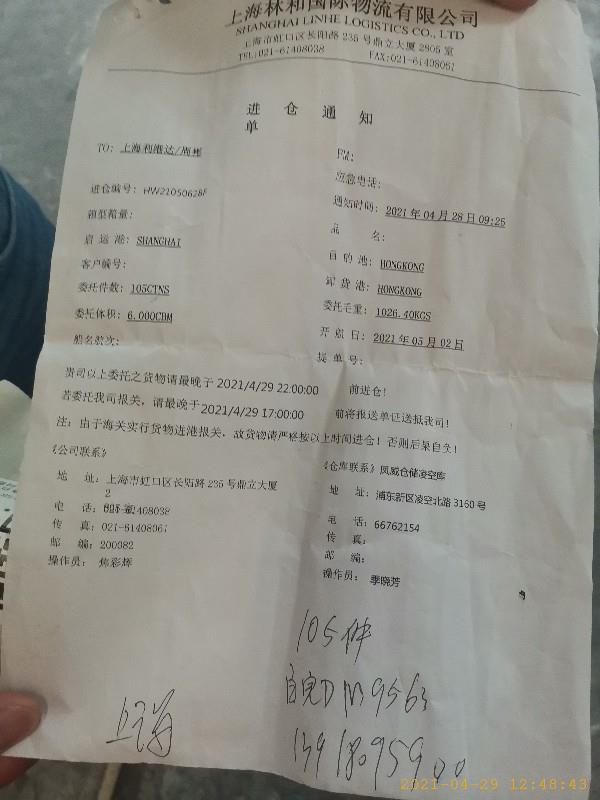 上海林和国际物流有限公司
SHANGHAI LINHE LOGISTICS CO., LTD
上海市虹口区长阳路 235 号鼎立大厦 2805 室
TEL:021-61408038 FAX:021-61408061
进 仓 通 知
单
TO: 上海利潍达/ FM:
应急电话:
进仓编号: HW21050628F 通知时间: 2021 年 04 月 28 日 09:25
箱型箱量: 品 名:
启运港: SHANGHAI 目的地: HONGKONG
客户编号: 卸货港: HONGKONG
委托件数: 105CTNS 委托毛重: 1026.40KGS
委托体积: 6.000CBM 开航日: 2021 年 05 月 02 日
船名航次: 提单号:
贵司以上委托之货物请最晚于 2021/4/29 22:00:00 前进仓!
若委托我司报关, 请最晚于 2021/4/29 17:00:00 前将报送单证送抵我司!
注: 由于海关实行货物进港报关, 故货物请严格按以上时间进仓! 否则后果自负!
《公司联系》 《仓库联系》 凤威仓储凌空库
地 址: 上海市虹口区长阳路 235 号鼎立大厦 地 址: 浦东新区凌空北路 3160 号
2
电 话: 61408038 电 话: 66762154
传 真: 021-61408061 传 真:
邮 编: 200082 邮 编:
操作员: 焦彩辉 操作员: 季晓芳
105件
皖D M9563
13918095900
2021-04-29 12:48:43